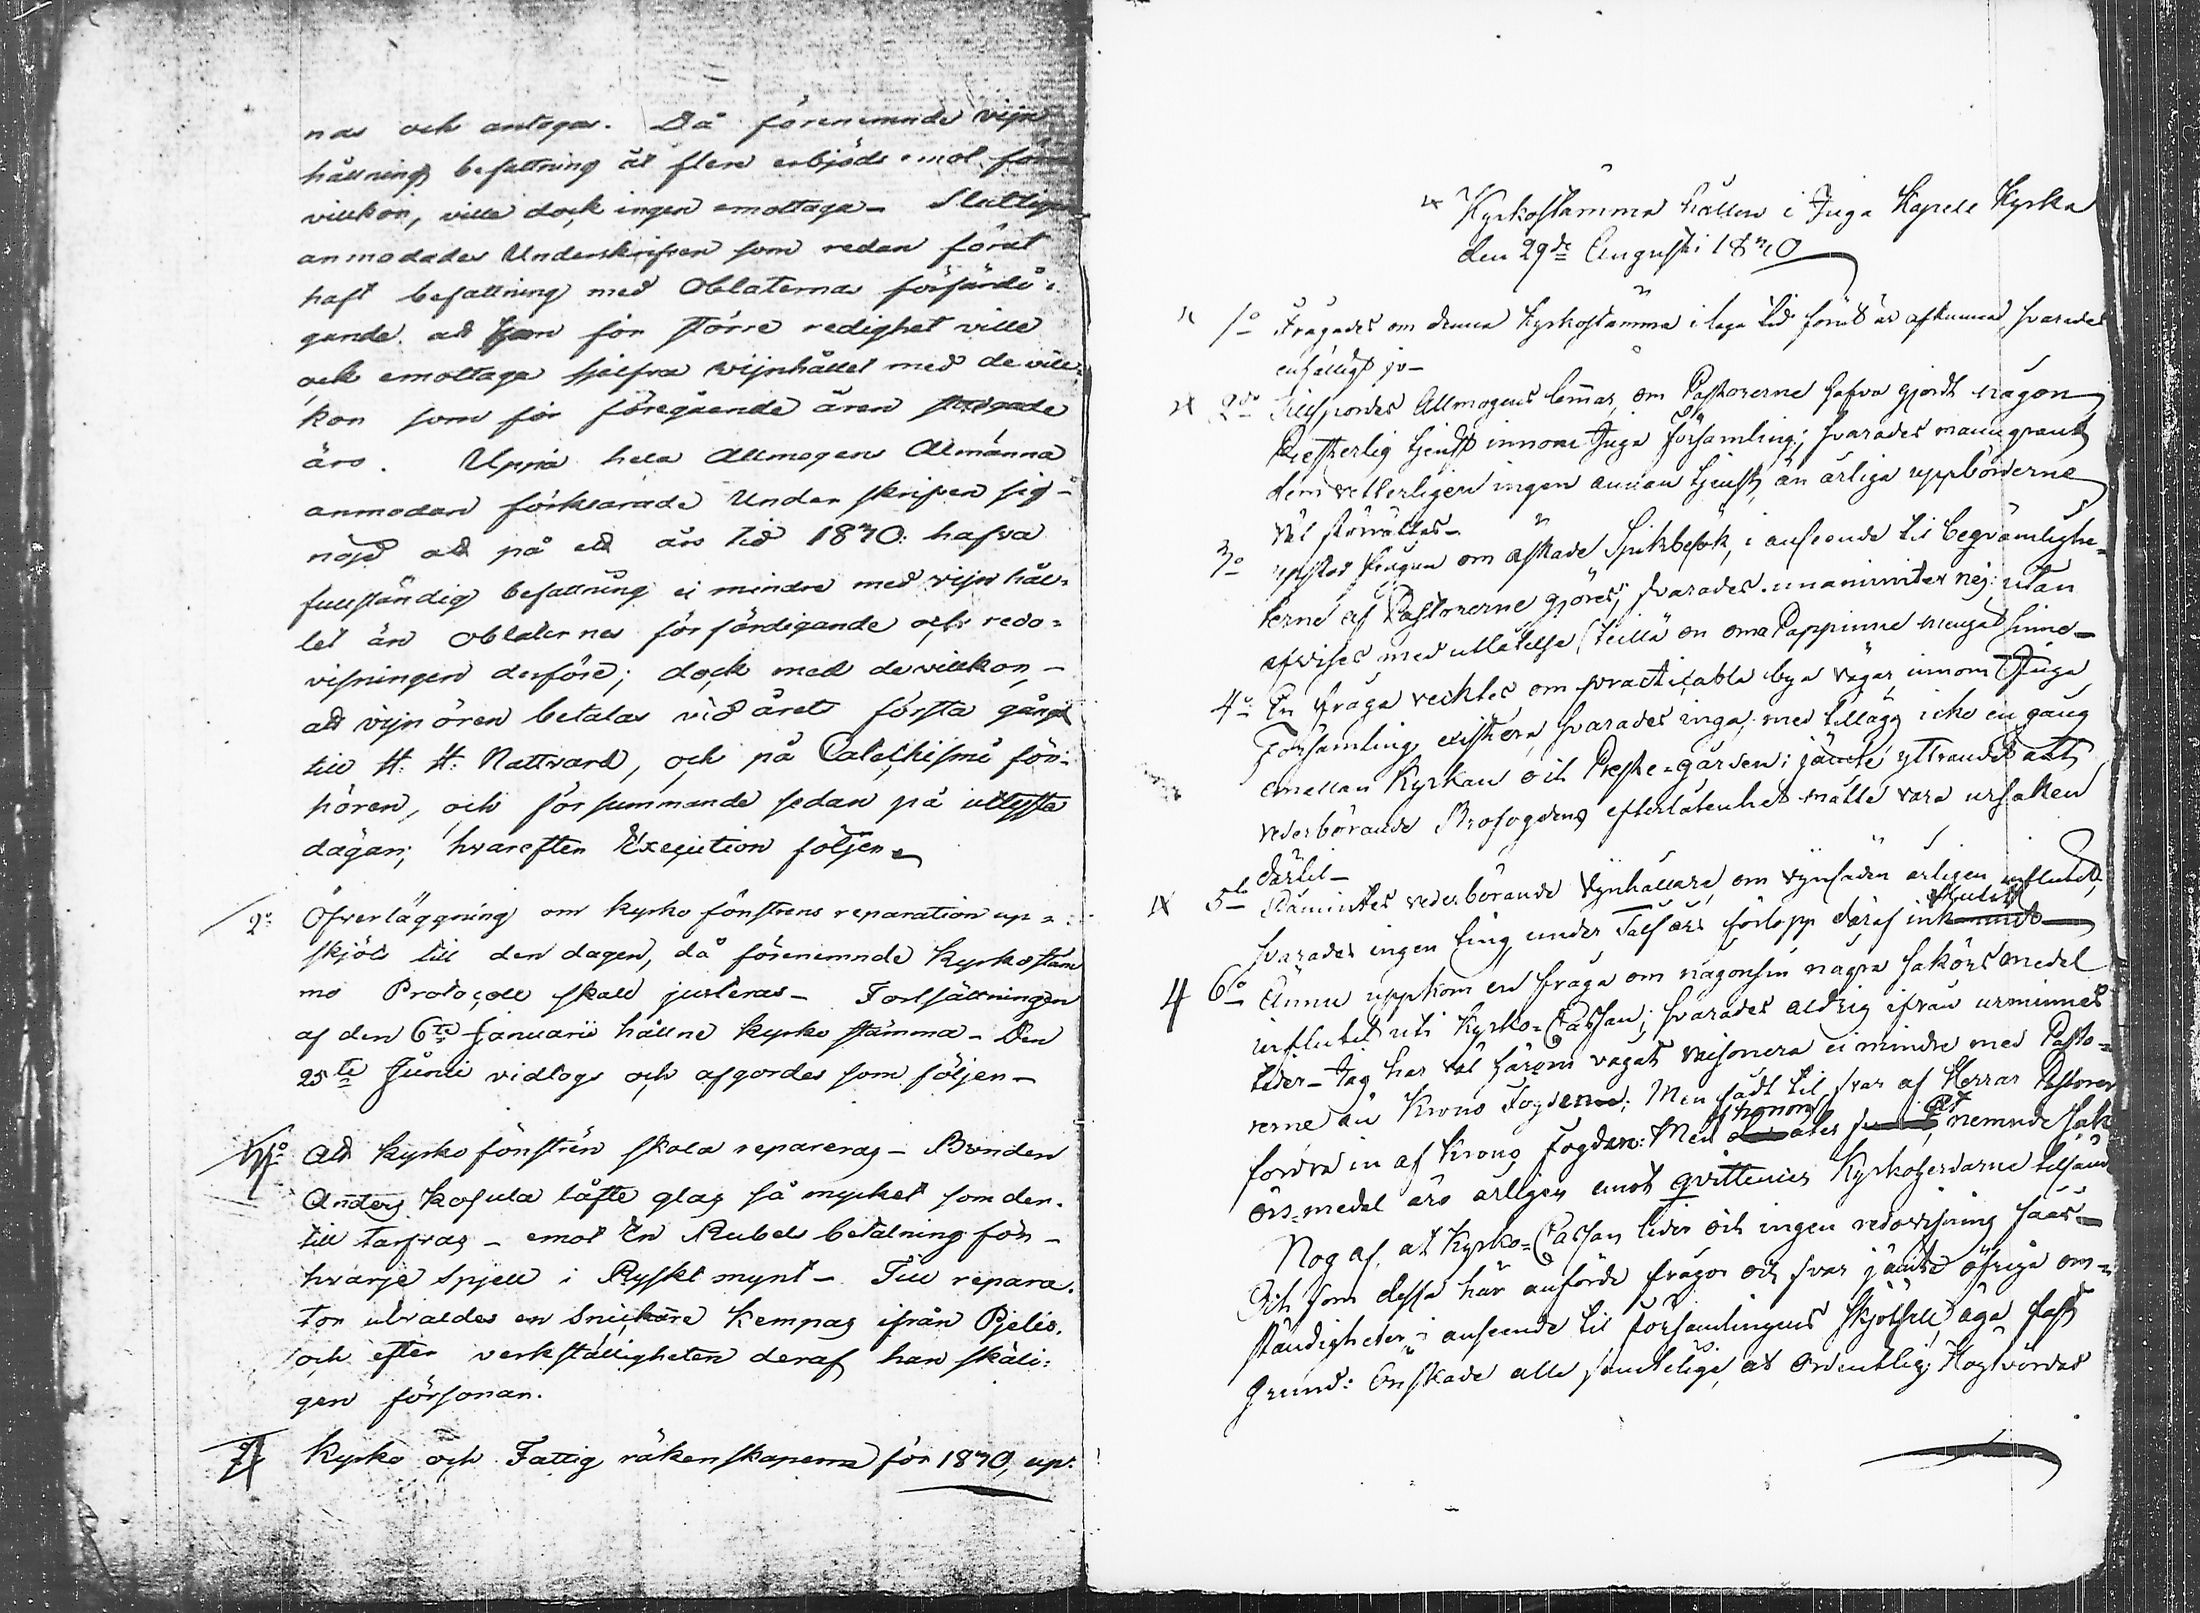 nas och antogas. Då förenemnde vijn
hållnings befattning åt flere erbjöds emot
villkor, ville dock ingen emottaga – Slutligen
anmodades Underskrifven som redan förut
haft befattning med Oblaternas förfärdi-
gande att han för större redighet ville
ock emottaga sjelfva vijnhållet med de vill-
kor som för föregående åren stadgade
äro. Uppå hela Allmogens Allmänna
anmodan förklarade Underskrifven sig –
nöjd att på ett års tid 1870: hafva
fullständig befattning ei mindre med vijn hål-
let än Oblaternes förfärdigande och redo-
visningen derföre; dock med de villkor, –
att vijn ören betalas vid årets första gång
till H. H. Nattvard, och på Catechismi för-
hören, och försummande sedan på utlysta
dagar; hvarefter Execution följer
2o Öfverläggning om kyrko fönstrens reparation up-
skjöts till den dagen, då förenemnde Kyrkostäm
mo Protocoll skall justeras – Fortsättningen
af den 6te Januarii hållne Kyrko stämma – Den
25te Junii vidtogs och afgordes som följer –
1o Att Kyrko fönstren skola repareras – Bonden
Anders Kosula låfte glas så mycket som der-
till tarfvas – emot En Rubels betalning för –
hvarje spjell i Ryskt mynt – Till repara-
tor utvaldes en Snickare Kempas ifrån Pjelis.
och efter verkställigheten deraf han skäli-
gen försonar.
2 Kyrko och Fattig räkenskaperna för 1870, up-
Kyrkostämma hållen i Juga Kapell Kyrka
den 29de Augusti 1870
1o Frågades om denna Kyrkostämma i laga tid förut är afkunnad svarades
enhälligt jo –
2do Tillspordes Allmogens lemar, om Pastorerne hafva gjordt någon
Presterlig tjenst innom Juga församling; svarades manngrant
dem vetterligen ingen annan tjenst, än årliga uppbörderne
väl förrättas –
3o uppstod frågan om äskade Sjukbesök, i anseende til beqvämlighe-
terne af Pastorerne gjöres, svarades unanimiter nej: utan
afvises med utlåtelse (teillä on oma Pappinne menget sinne –
4o En fråga vecktes om practicabla bya vägar innom Juga
Församling existera, svarades inga, med tillägg icke en gång
emellan Kyrkan och Preste-gården; jämte yttrandet att
vederbörande Brofogdens efterlåtenhet måtte vara ursaken
därtil –
5to Påmintes vederbörande Vijnhållare, om vijnsäden årligen influtit,
svarades ingen ting under Talf års förlopp däraf influtit
6o Ännu uppkom en fråga om någonsin några saköres medel
influtit uti Kyrko-Cassan; svarades aldrig ifrån urminnes
tider – Jag har väl härom vågat raisonera ei mindre med Pasto-
rerne än Krono Fogden; Men fådt til svar af Herrar Pastorer
fordra in af Krono Fogden: Med honom åter nemnde sak-
örs-medel äro årligen emot qvittencier Kyrkoherdarne tilsänd
Nog af, at Kyrko-Cassan lider och ingen redovisning fåås –
Och som dessa här anförde frågor och svar jämte öfriga om-
ständigheter i anseende til församlingens skjötsell, äga fast
grund: Önskade alla samtelige, at Ordentlig Högtvördas